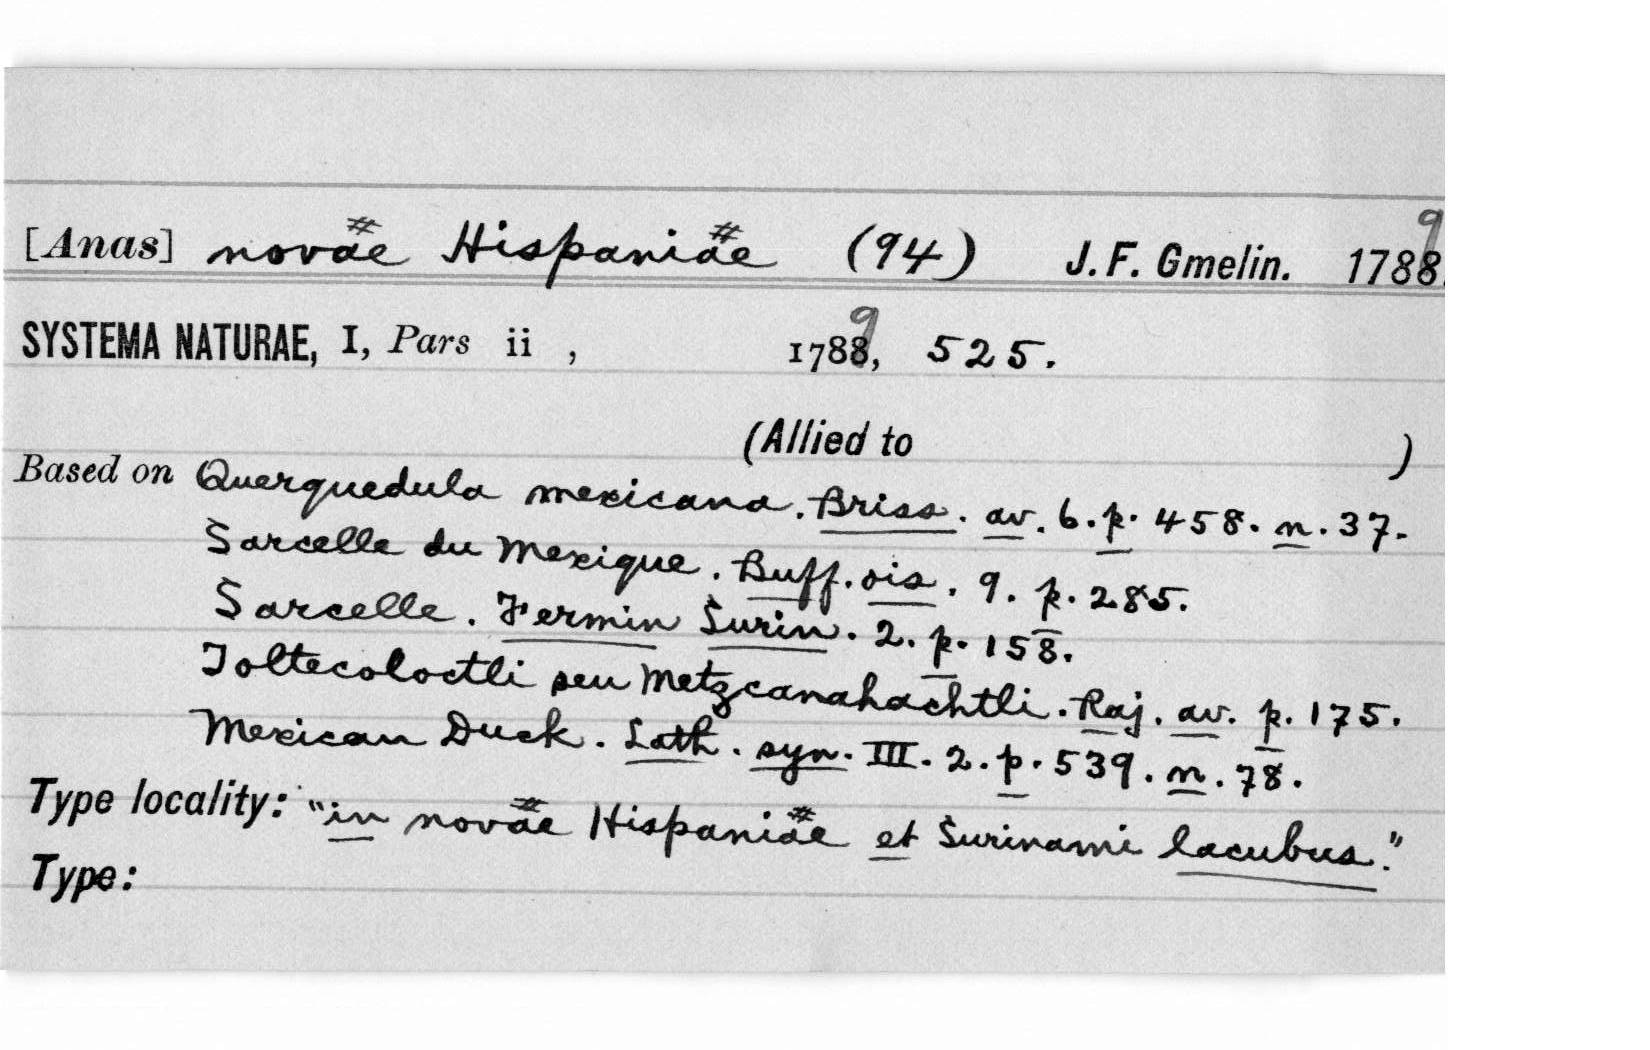 [Anas] novae Hispaniae (94) J. F. Gmelin. 1789
SYSTEMA NATURAE, I, Pars ii , 1789, 525.
(Allied to )
Based on Querquedula mexicana. Briss. av. 6. p. 458. n. 37.
Sarcelle du Mexique. Buff. ois. 9. p. 285.
Sarcelle. Fermin Surin. 2. p. 158.
Toltecoloctli seu Metzcanahachtli. Raj. av. p. 175.
Mexican Duck. Lath. syn. III. 2. p. 539. n. 78.
Type locality: "in novae Hispaniae et Surinami lacubus."
Type: